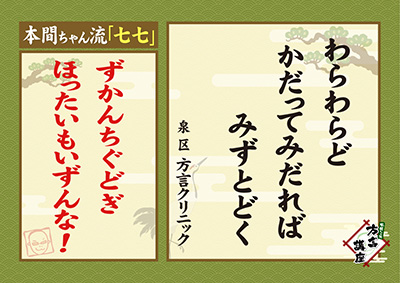 わらわらど
かだってみだれば
みずとどく
泉区 方言クリニック
本間ちゃん流「七七」
ずかんちぐどぎ
ほったいもいずんな！
方言
講座